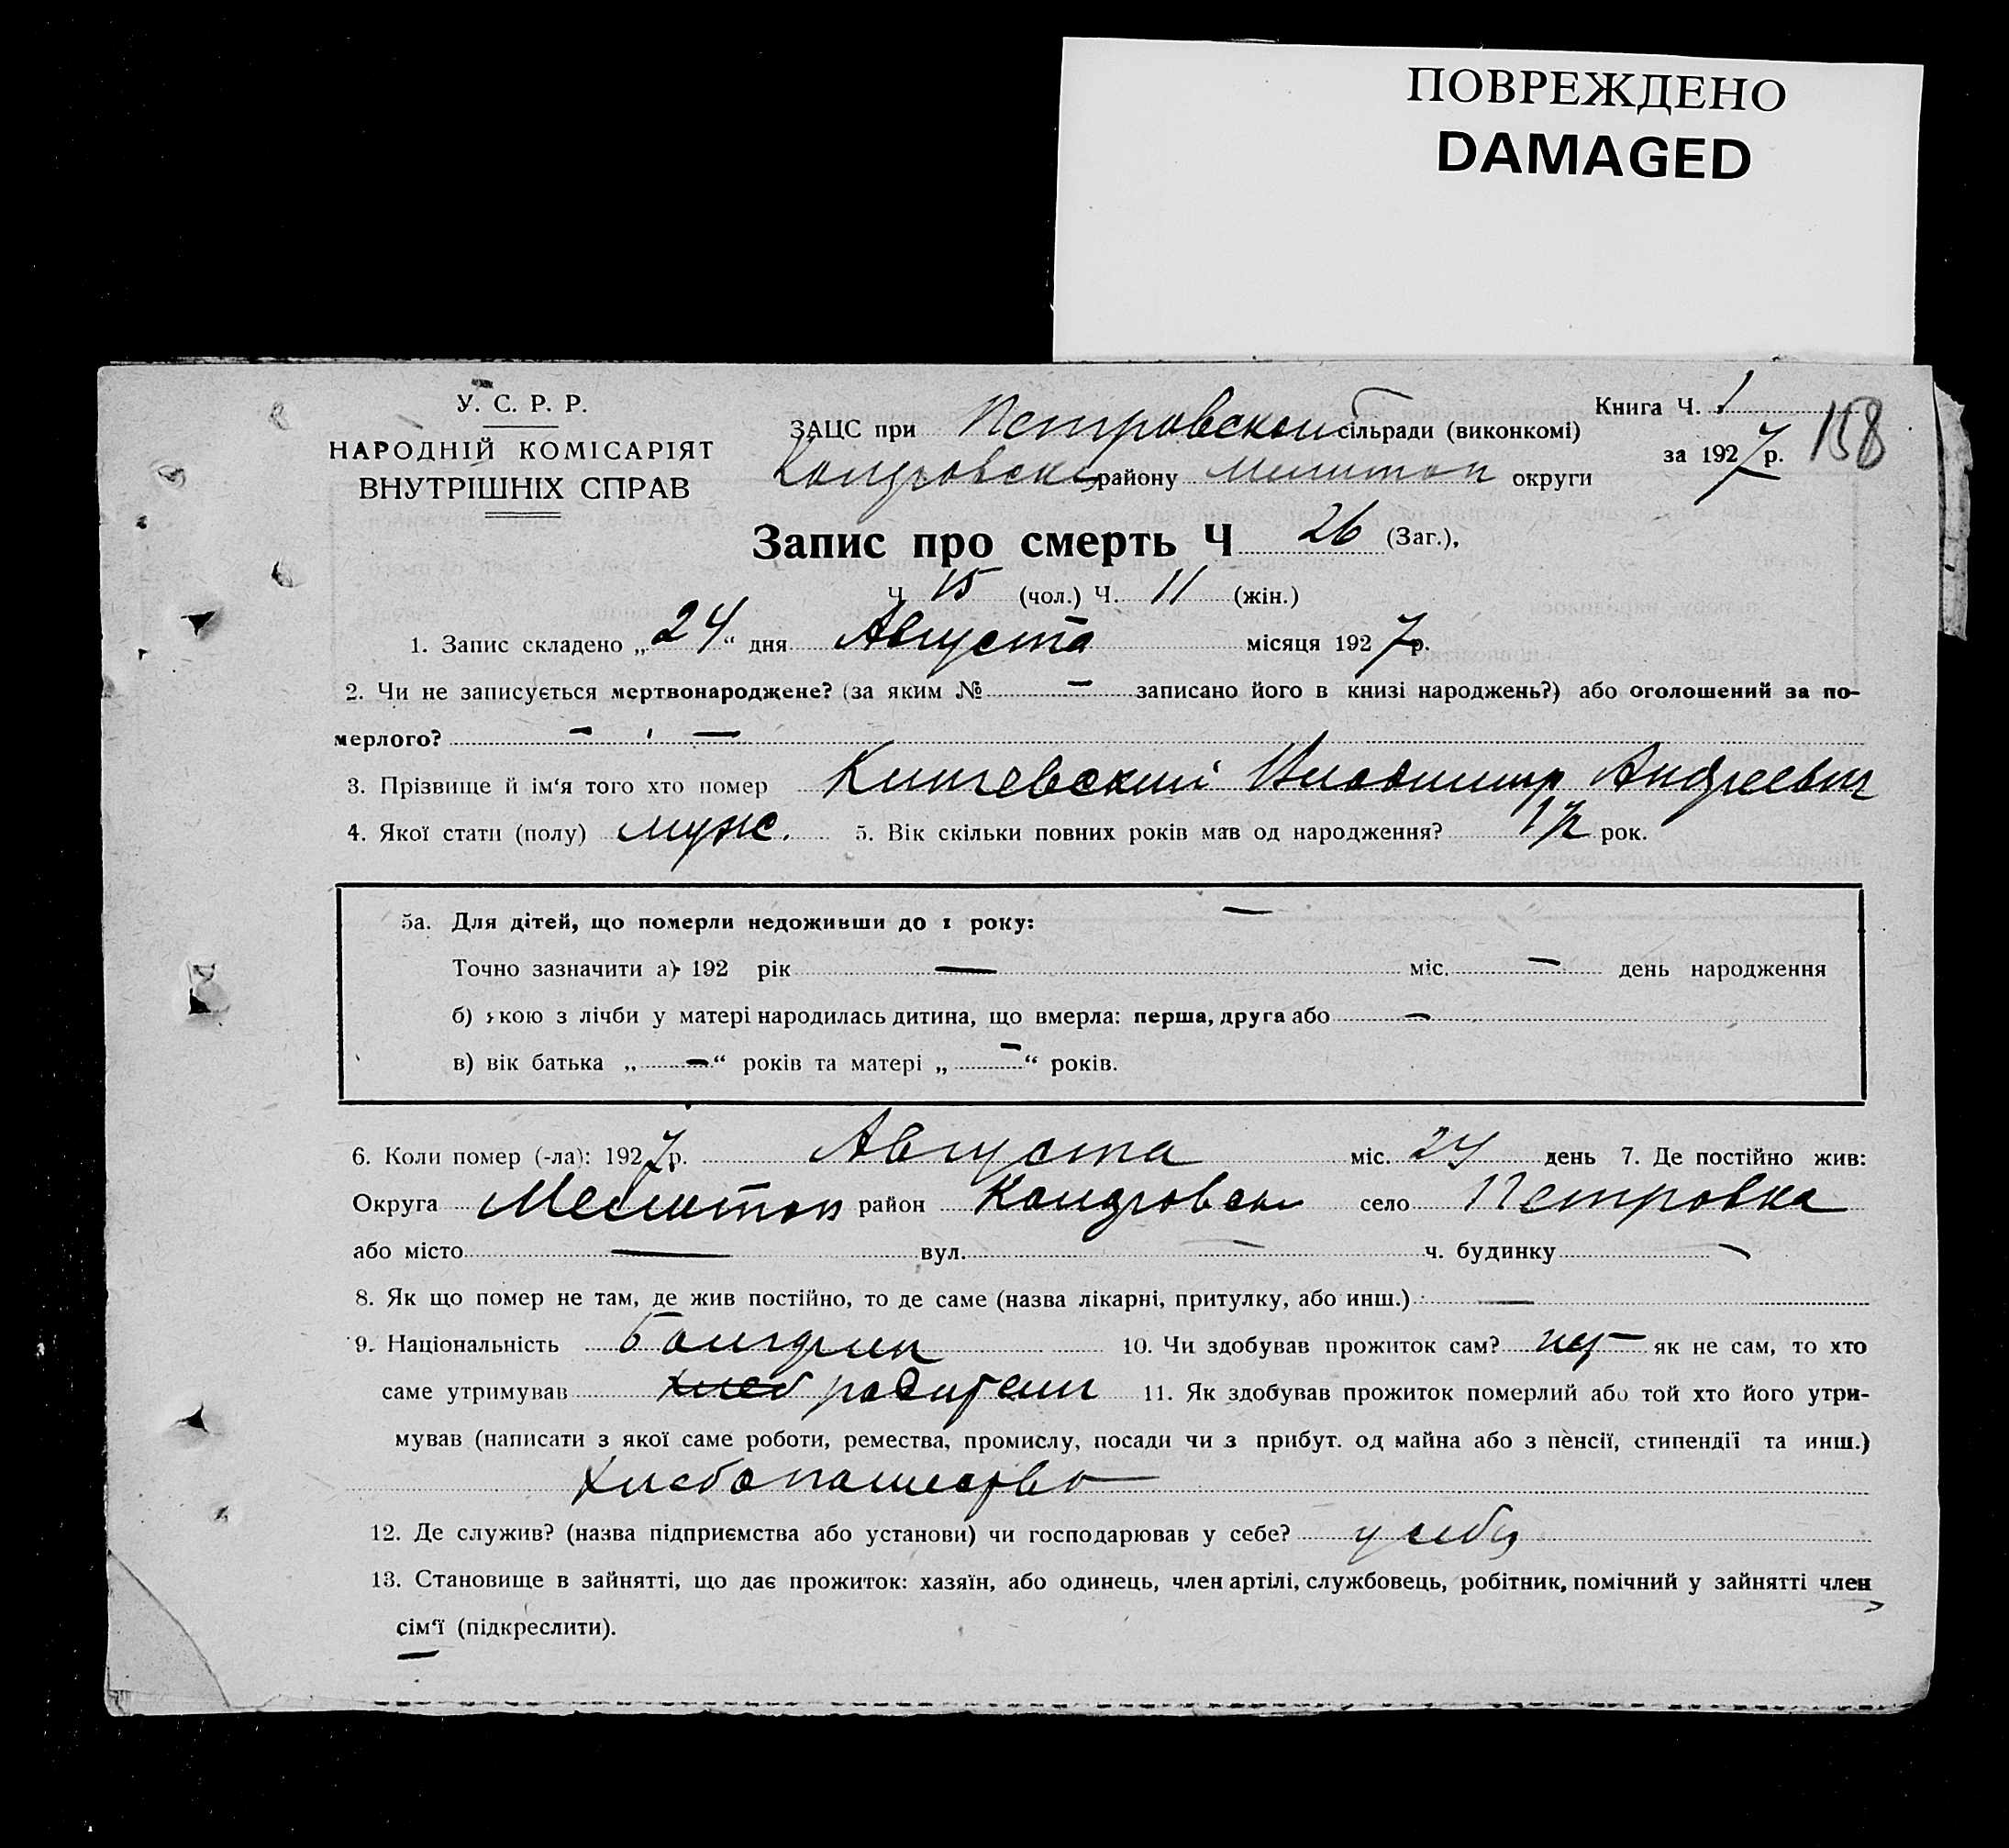 ПОВРЕЖДЕНО
DAMAGED
У. С. Р. Р.
НАРОДНІЙ КОМІСАРІЯТ
ВНУТРІШНІХ СПРАВ
Книга Ч. 1
за 1927 р. 158
ЗАЦС при Петровской сільради (виконкомі)
району Мелитоп округи
Запис про смерть Ч 26 (Заг.),
Ч 15 (чол.) Ч. 11 (жін.)
1. Запис складено „24“ дня Августа місяця 1927 р.
2. Чи не записується мертвонароджене? (за яким № — записано його в книзі народжень?) або оголошений за по-
мерлого? — —
3. Прізвище й ім‘я того хто помер Владимир Андреевич
4. Якої стати (полу) муж. 5. Вік скільки повних років мав од народження? 1 1/2 рок.
5а. Для дітей, що померли недоживши до 1 року: —
Точно зазначити а) 192 рік — міс. — день народження
б) якою з лічби у матері народилась дитина, що вмерла: перша, друга або —
в) вік батька „—“ років та матері „—“ років.
6. Коли помер (-ла): 1927 р. Августа міс. 24 день 7. Де постійно жив:
Округа Мелитоп район село Петровка
або місто — вул. — ч. будинку —
8. Як що помер не там, де жив постійно, то де саме (назва лікарні, притулку, або инш.) —
9. Національність 10. Чи здобував прожиток сам? нет як не сам, то хто
саме утримував хлеб родители 11. Як здобував прожиток померлий або той хто його утри-
мував (написати з якої саме роботи, ремества, промислу, посади чи з прибут. од майна або з пенсії, стипендії та инш.)
Хлебопашество
12. Де служив? (назва підприємства або установи) чи господарював у себе? у себя
13. Становище в зайнятті, що дає прожиток: хазяїн, або одинець, член артілі, службовець, робітник, помічний у зайнятті член
сім‘ї (підкреслити).